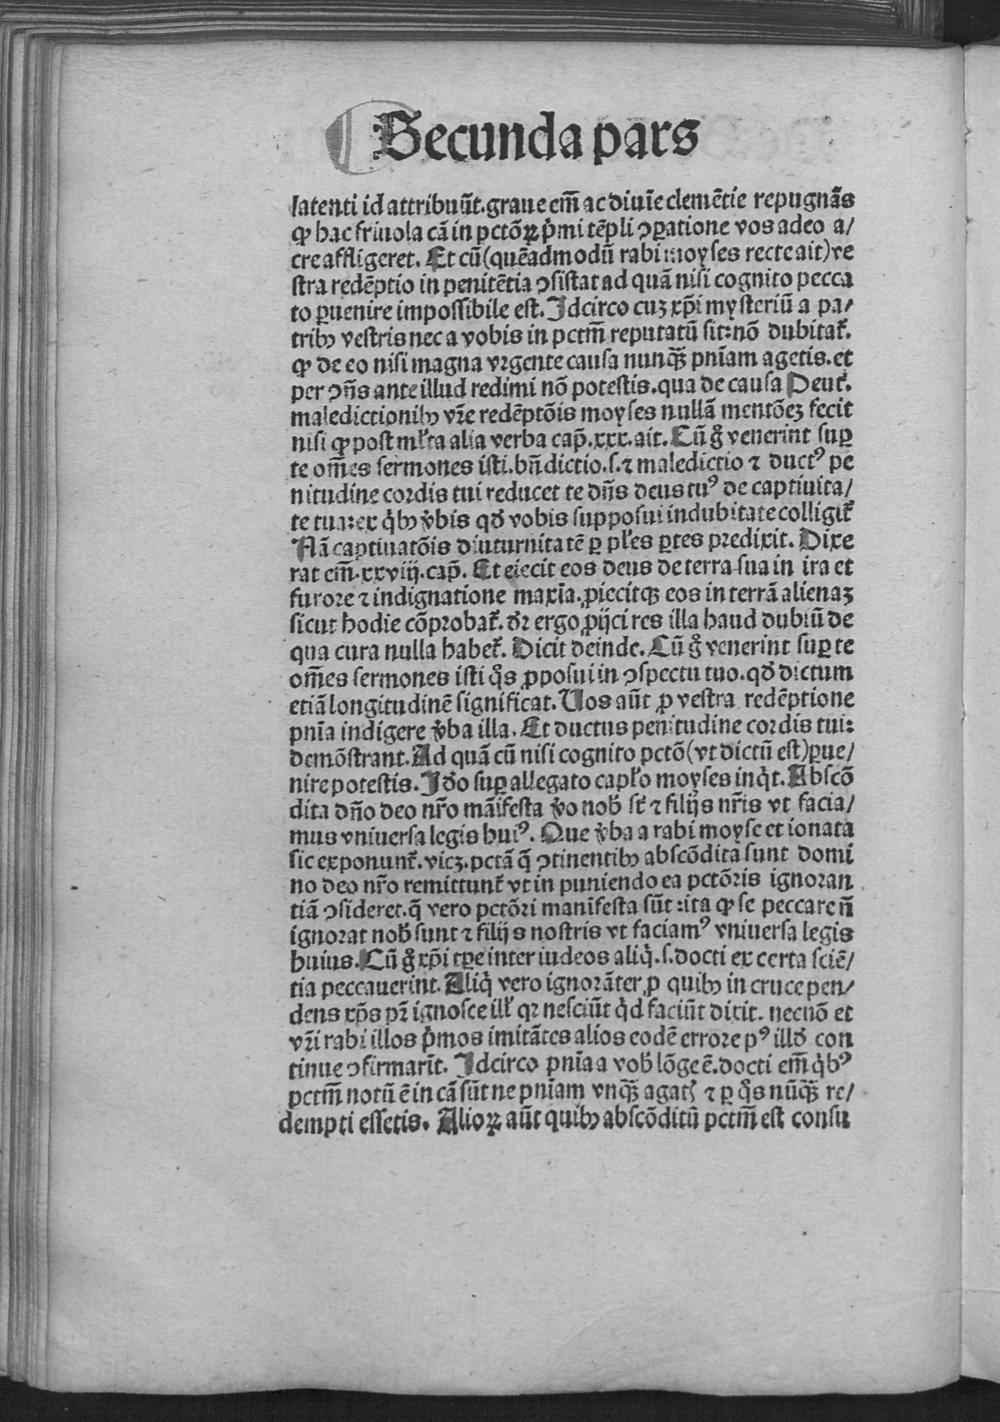 Secunda pars
latenti id attribuūt. graue em̄ ac diuīe clemētie repugnās
ꝙ hac friuola cā in pctōꝝ p̄mi tēpli ꝯꝑatione vos adeo a/
cre affligeret. Et cū (quēadmodū rabi moyses recte ait) ve
stra redēptio in penitētia ꝯsistat ad quā nisi cognito pecca
to ꝑuenire impossibile est. Idcirco cuꝫ xp̄i mysteriū a pa/
tribꝰ vestris nec a vobis in pctm̄ reputatū sit: nō dubitat᷑.
ꝙ de eo nisi magna vrgente causa nunqꝫ̄ pn̄iam agetis. et
per ꝯn̄s ante illud redimi nō potestis. qua de causa Deut᷑.
maledictionibꝰ vr̄e redēptōis moyses nullā mentōeꝫ fecit
nisi ꝙ post ml̄ta alia verba cap̄. xxx. ait. Cū g̊ venerint suꝑ
te om̄es sermones isti. bn̄dictio. s. ⁊ maledictio ⁊ ductꝰ pe
nitudine cordis tui reducet te dn̄s deus tuꝰ de captiuita/
te tua: ex q̇bꝰ v̓bis qd̓ vobis supposui indubitate colligit᷑
Nā captiuatōis diuturnitatē ꝑ pl̄es ꝑtes predixit. Dixe
rat em̄. xxviij. cap̄. Et eiecit eos deus de terra sua in ira et
furore ⁊ indignatione maxīa. ꝓiecitqꝫ eos in terrā alienaꝫ
sicut hodie cōprobat᷑. dr̄ ergo ꝓijci res illa haud dubiū de
qua cura nulla habet᷑. Dicit deinde. Cū g̊ venerint suꝑ te
om̄es sermones isti q̊s ꝓposui in ꝯspectu tuo. qd̓ dictum
etiā longitudinē significat. Uos aūt ꝓ vestra redēptione
pn̄ia indigere v̓ba illa. Et ductus penitudine cordis tui:
demōstrant. Ad quā cū nisi cognito pctō (vt dictū est) ꝑue/
nire potestis. Id̓o suꝑ allegato capl̄o moyses inq̇t. Abscō
dita dn̄o deo nr̄o māifesta v̓o nob̓ st̄ ⁊ filijs nr̄is vt facia/
mus vniuersa legis huiꝰ. Que v̓ba a rabi moyse et ionata
sic exponunt᷑. vicꝫ. pctā q̄ ꝯtinentibꝰ abscōdita sunt domi
no deo nr̄o remittunt᷑ vt in puniendo ea pctōris ignoran
tiā ꝯsideret. q̄ vero pctōri manifesta sūt: ita ꝙ se peccare n̄
ignorat nob̓ sunt ⁊ filijs nostris vt faciamꝰ vniuersa legis
huius. Cū g̊ xp̄i tꝑe inter iudeos aliq̇. s. docti ex certa sciē/
tia peccauerint. Aliq̇ vero ignorāter ꝓ quibꝰ in cruce pen/
dens xp̄s pr̄ ignosce ill̓ qr nesciūt q̇d faciūt dixit. necnō et
vr̄i rabi illos p̄mos imitātes alios eodē errore pꝰ illd̓ con
tinue ꝯfirmarīt. Idcirco pn̄ia a vob̓ lōge ē. docti em̄ q̇bꝰ
pctm̄ notū ē in cā sūt ne pn̄iam vnqꝫ̄ agat᷑ ⁊ ꝑ q̊s nūqꝫ̄ re/
dempti essetis. Alioꝝ aūt quibꝰ abscōditū pctm̄ est consu